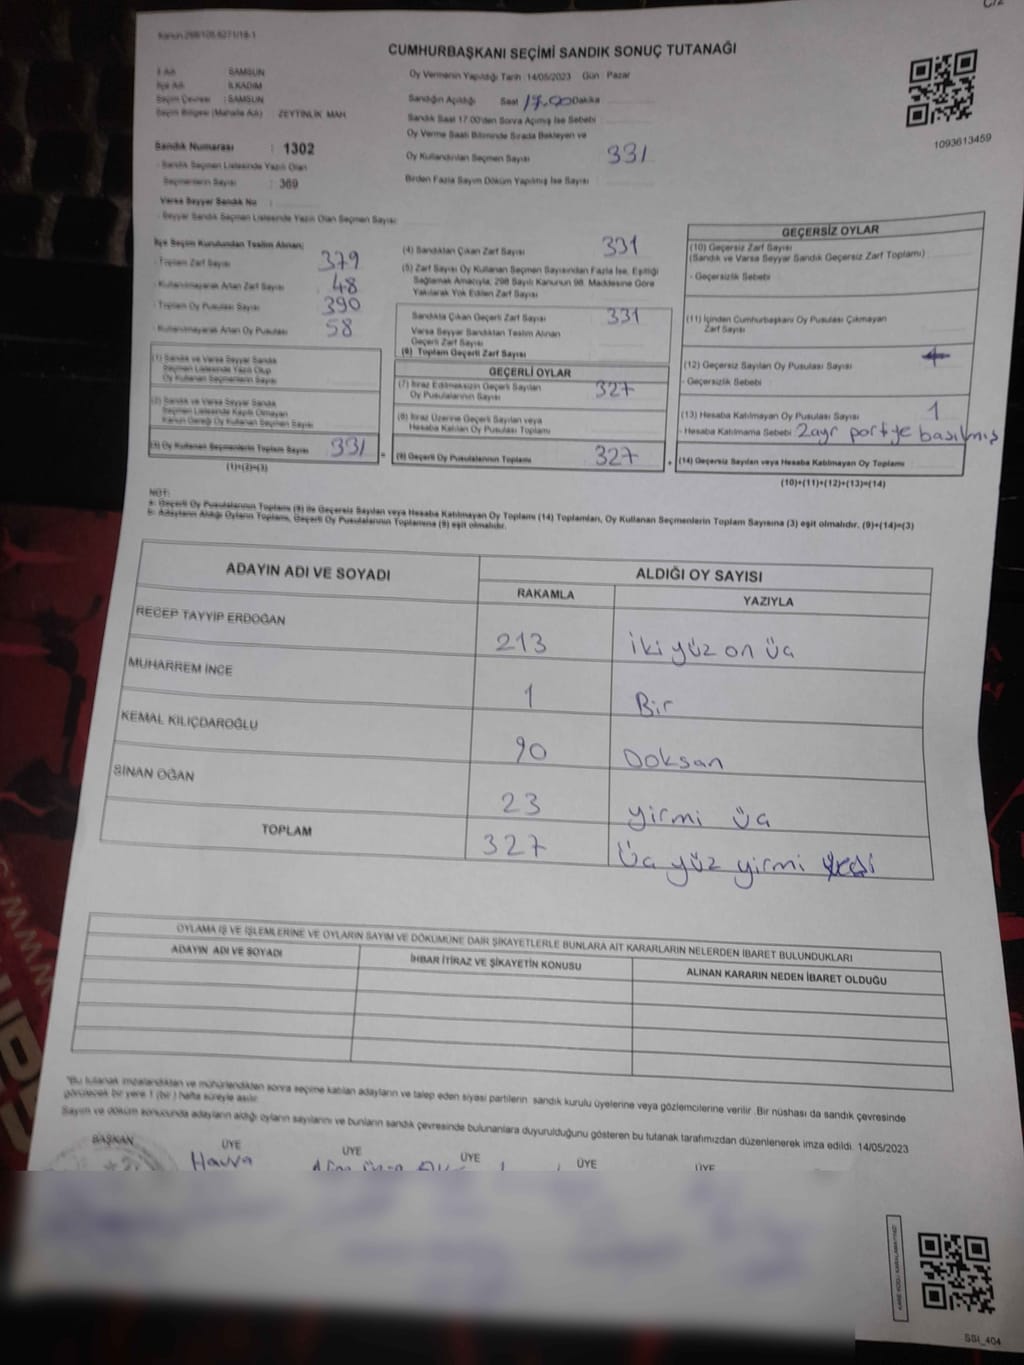 Kanun 298/105,6271/18-1
CUMHURBAŞKANI SEÇİMİ SANDIK SONUÇ TUTANAĞI
İl Adı SAMSUN
İlçe Adı İLKADIM
Seçim Çevresi : SAMSUN
Seçim Bölgesi (Mahalle Adı) ZEYTİNLİK MAH
Sandık Numarası : 1302
- Sandık Seçmen Listesinde Yazılı Olan
Seçmenlerin Sayısı : 369
Varsa Seyyar Sandık No :
- Seyyar Sandık Seçmen Listesinde Yazılı Olan Seçmen Sayısı
Oy Vermenin Yapıldığı Tarih : 14/05/2023 Gün : Pazar
Sandığın Açıldığı Saat 17.00 Dakika
Sandık Saat 17:00'den Sonra Açımış İse Sebebi
Oy Verme Saati Bitiminde Sırada Bekleyen ve
Oy Kullandırılan Seçmen Sayısı 331
Birden Fazla Sayım Döküm Yapılmış İse Sayısı
1093613459
İlçe Seçim Kurulundan Teslim Alınan;
- Toplam Zarf Sayısı 379
- Kullanılmayarak Artan Zarf Sayısı 48
- Toplam Oy Pusulası Sayısı 390
- Kullanılmayarak Artan Oy Pusulası 58
(1) Sandık ve Varsa Seyyar Sandık
Seçmen Listesinde Yazılı Olup
Oy Kullanan Seçmenlerin Sayısı
(2) Sandık ve Varsa Seyyar Sandık
Seçmen Listesinde Kayıtlı Olmayan
Kanun Gereği Oy Kullanan Seçmen Sayısı
(3) Oy Kullanan Seçmenlerin Toplam Sayısı 331 =
(1)+(2)=(3)
(4) Sandıktan Çıkan Zarf Sayısı 331
(5) Zarf Sayısı Oy Kullanan Seçmen Sayısından Fazla İse, Eşitliği
Sağlamak Amacıyla; 298 Sayılı Kanunun 98. Maddesine Göre
Yakılarak Yok Edilen Zarf Sayısı
Sandıkta Çıkan Geçerli Zarf Sayısı 331
Varsa Seyyar Sandıktan Teslim Alınan
Geçerli Zarf Sayısı
(6) Toplam Geçerli Zarf Sayısı
GEÇERLİ OYLAR
(7) İtiraz Edilmeksizin Geçerli Sayılan
Oy Pusulalarının Sayısı 327
(8) İtiraz Üzerine Geçerli Sayılan veya
Hesaba Katılan Oy Pusulaları Toplamı
(9) Geçerli Oy Pusulalarının Toplamı 327 +
GEÇERSİZ OYLAR
(10) Geçersiz Zarf Sayısı
(Sandık ve Varsa Seyyar Sandık Geçersiz Zarf Toplamı)
- Geçersizlik Sebebi
(11) İçinden Cumhurbaşkanı Oy Pusulası Çıkmayan
Zarf Sayısı
(12) Geçersiz Sayılan Oy Pusulası Sayısı
- Geçersizlik Sebebi
(13) Hesaba Katılmayan Oy Pusulası Sayısı 1
- Hesaba Katılmama Sebebi 2 ayr portye basılmış
(14) Geçersiz Sayılan veya Hesaba Katılmayan Oy Toplamı
(10)+(11)+(12)+(13)=(14)
NOT:
a- Geçerli Oy Pusulalarının Toplamı (9) ile Geçersiz Sayılan veya Hesaba Katılmayan Oy Toplamı (14) Toplamları, Oy Kullanan Seçmenlerin Toplam Sayısına (3) eşit olmalıdır. (9)+(14)=(3)
b- Adayların Aldığı Oyların Toplamı, Geçerli Oy Pusulalarının Toplamına (9) eşit olmalıdır.
ADAYIN ADI VE SOYADI
ALDIĞI OY SAYISI
RAKAMLA YAZIYLA
RECEP TAYYİP ERDOĞAN 213 iki yüz on üç
MUHARREM İNCE 1 Bir
KEMAL KILIÇDAROĞLU 90 Doksan
SİNAN OĞAN 23 yirmi üç
TOPLAM 327 Üç yüz yirmi yedi
OYLAMA İŞ VE İŞLEMLERİNE VE OYLARIN SAYIM VE DÖKÜMÜNE DAİR ŞİKAYETLERLE BUNLARA AİT KARARLARIN NELERDEN İBARET BULUNDUKLARI
ADAYIN ADI VE SOYADI İHBAR İTİRAZ VE ŞİKAYETİN KONUSU ALINAN KARARIN NEDEN İBARET OLDUĞU
"Bu tutanak imzalandıktan ve mühürlendikten sonra seçime katılan adayların ve talep eden siyasi partilerin sandık kurulu üyelerine veya gözlemcilerine verilir .Bir nüshası da sandık çevresinde
görülecek bir yere 1 (bir ) hafta süreyle asılır.
Sayım ve döküm sonucunda adayların aldığı oyların sayılarını ve bunların sandık çevresinde bulunanlara duyurulduğunu gösteren bu tutanak tarafımızdan düzenlenerek imza edildi. 14/05/2023
BAŞKAN ÜYE ÜYE ÜYE ÜYE ÜYE
Havva
SSİ_404